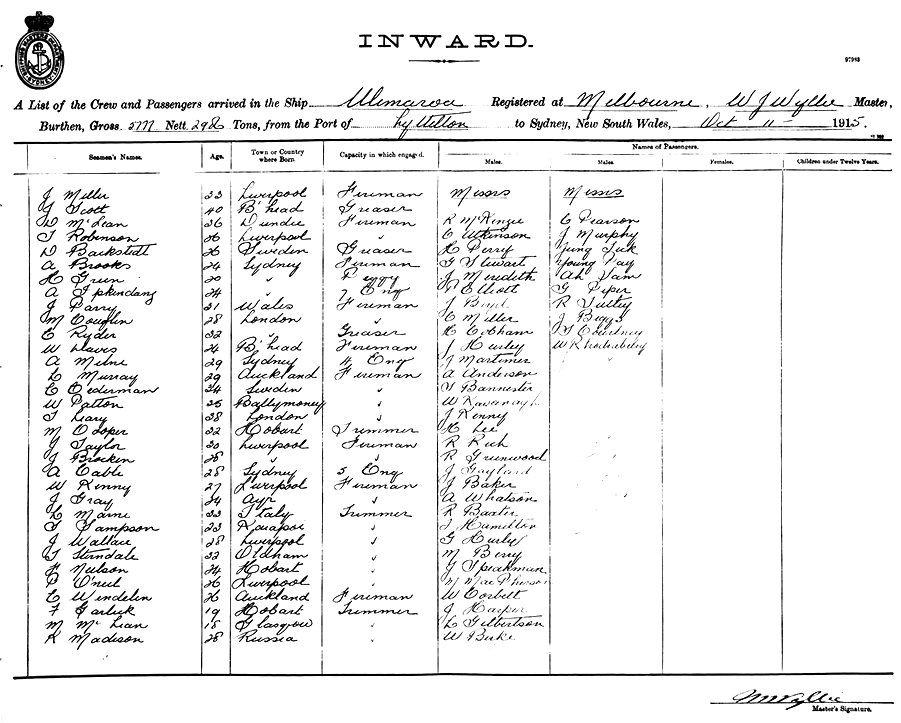 INWARD.
97963
A List of the Crew and Passengers arrived in the Ship Ulimaroa Registered at Melbourne, W J Wyllie Master,
Burthen, Gross Nett Tons, from the Port of Lyttelton to Sydney, New South Wales, Oct 11 1915.
Seamen's Names. Age. Town or Country where Born. Capacity in which engaged. Names of Passengers.
Males. Males. Females. Children under Twelve Years.
J Miller 33 Liverpool Fireman Messrs Messrs
J Scott 40 B'head Greaser
D McLean 36 Dundee Fireman R McKenzie C Pearson
T Robinson 26 Liverpool " E Atkinson J Murphy
D Backstedt 26 Sweden Greaser H Perry Yung Suk
A Brooks 24 Sydney Fireman G Stewart Young Tay
H Green 20 " Peggy J Meredith Ah Sam
A 24 " 7 Eng Elliott G Piper
J Parry 21 Wales Fireman J Boyd R
M Coughlin 28 London " C Miller J Biggs
E Ryder 32 " Greaser H Cobham Courtney
W Davis 24 B'head Fireman J Hurley W
A Milne 29 Sydney 4 Eng J Mortimer
L Murray 29 Auckland Fireman A Anderson
C Cederman 34 Sweden " T Bannester
W Patton 35 Ballymoney " W Kavanagh
T Leary 38 London " J Kenny
M Cooper 32 Hobart Trimmer H Lee
J Taylor 30 Liverpool Fireman R Rich
J Bracken 28 " " R Greenwood
A Cable 28 Sydney 5 Eng J Gayland
W Kenny 27 Liverpool Fireman J Baker
J Gray 24 Ayr " A Whatson
L Marne 33 Italy Trimmer R Baxter
T Sampson 23 Kaiapoi " J Hamilton
J Wallace 28 Liverpool " G Hurley
T Sterndale 32 Oldham " M Berry
H Neilson 24 Hobart " G Speakman
P O'neil 26 Liverpool " M MacPherson
C Windelin 26 Auckland Fireman W Corbett
F Garlick 19 Hobart Trimmer J Harper
M McLean 18 Glasgow " L Gilbertson
K Madison 28 Russia " W Birke
W J Wyllie
Master's Signature.